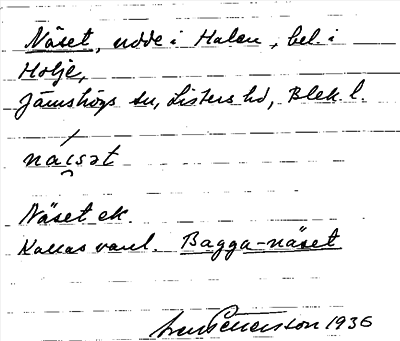 Näset, udde i Halen, bel. i
Holje,
Jämshögs sn, Listers hd, Blek. l.
na͡isət
Näset ek.
Kallas vanl. Bagga-näset
Sven Petersson 1936